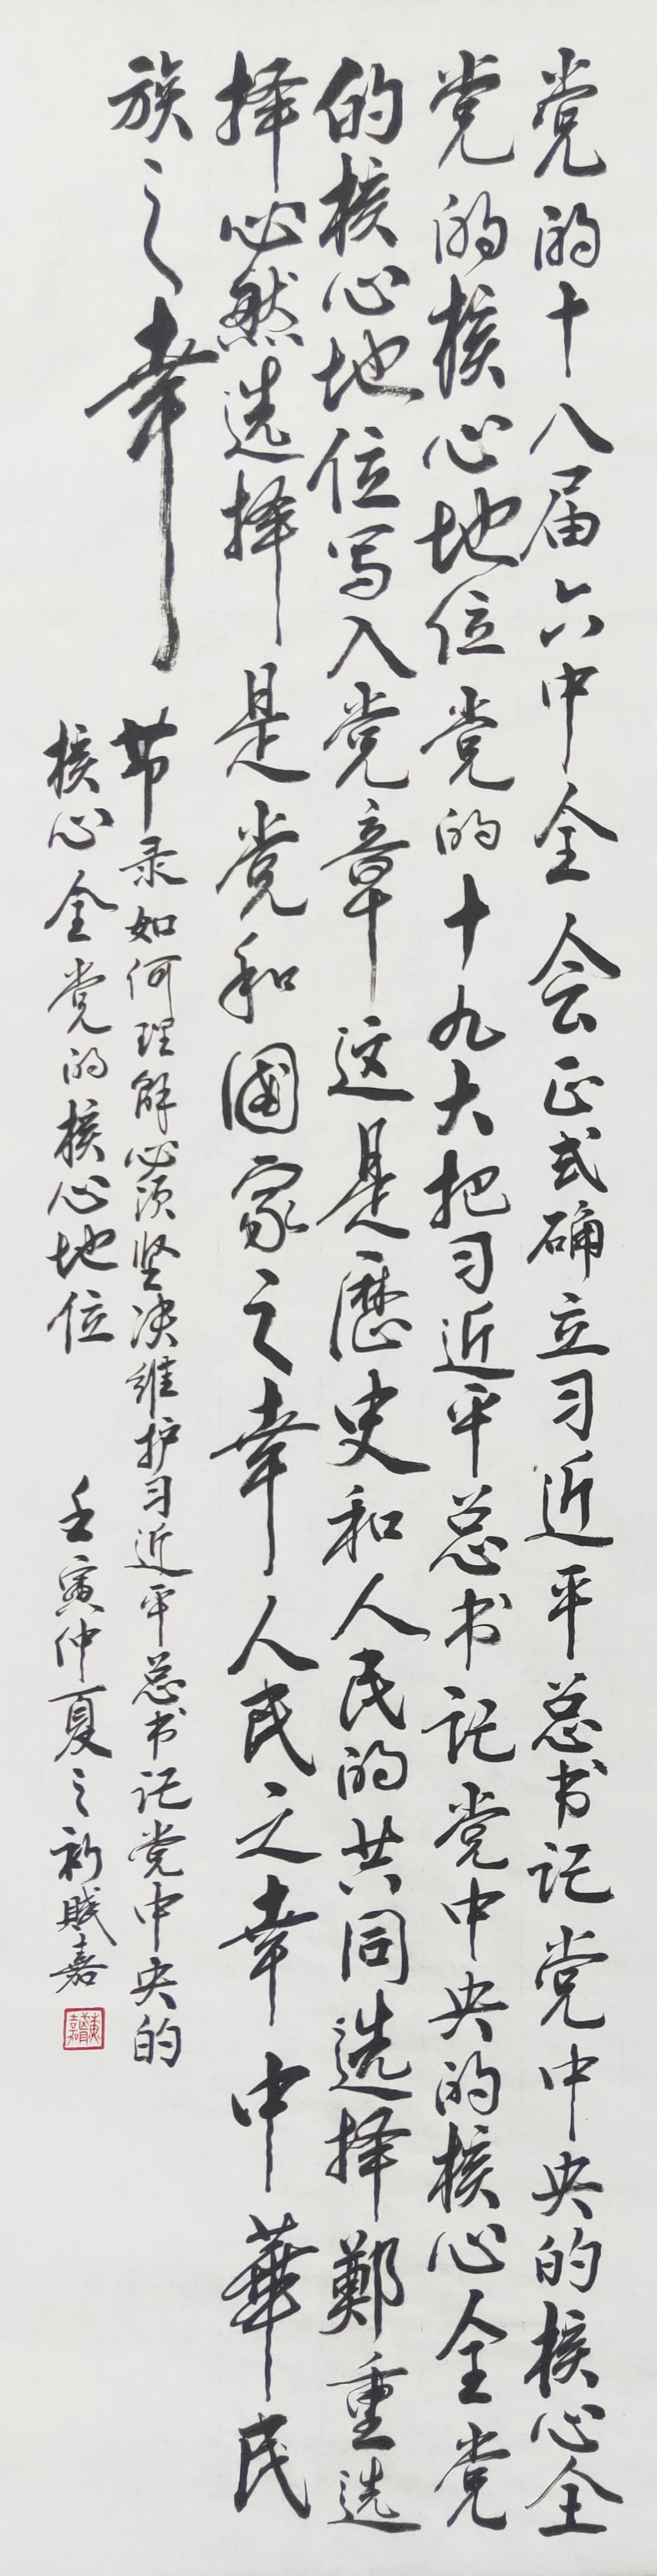 党的十八届六中全会正式确立习近平总书记党中央的核心全
党的核心地位党的十九大把习近平总书记党中央的核心全党
的核心地位写入党章这是历史和人民的共同选择鄭重选
择必然选择是党和國家之幸人民之幸中華民
族之幸
节录如何理解必须坚决维护习近平总书记党中央的
核心全党的核心地位
壬寅仲夏之
嘉